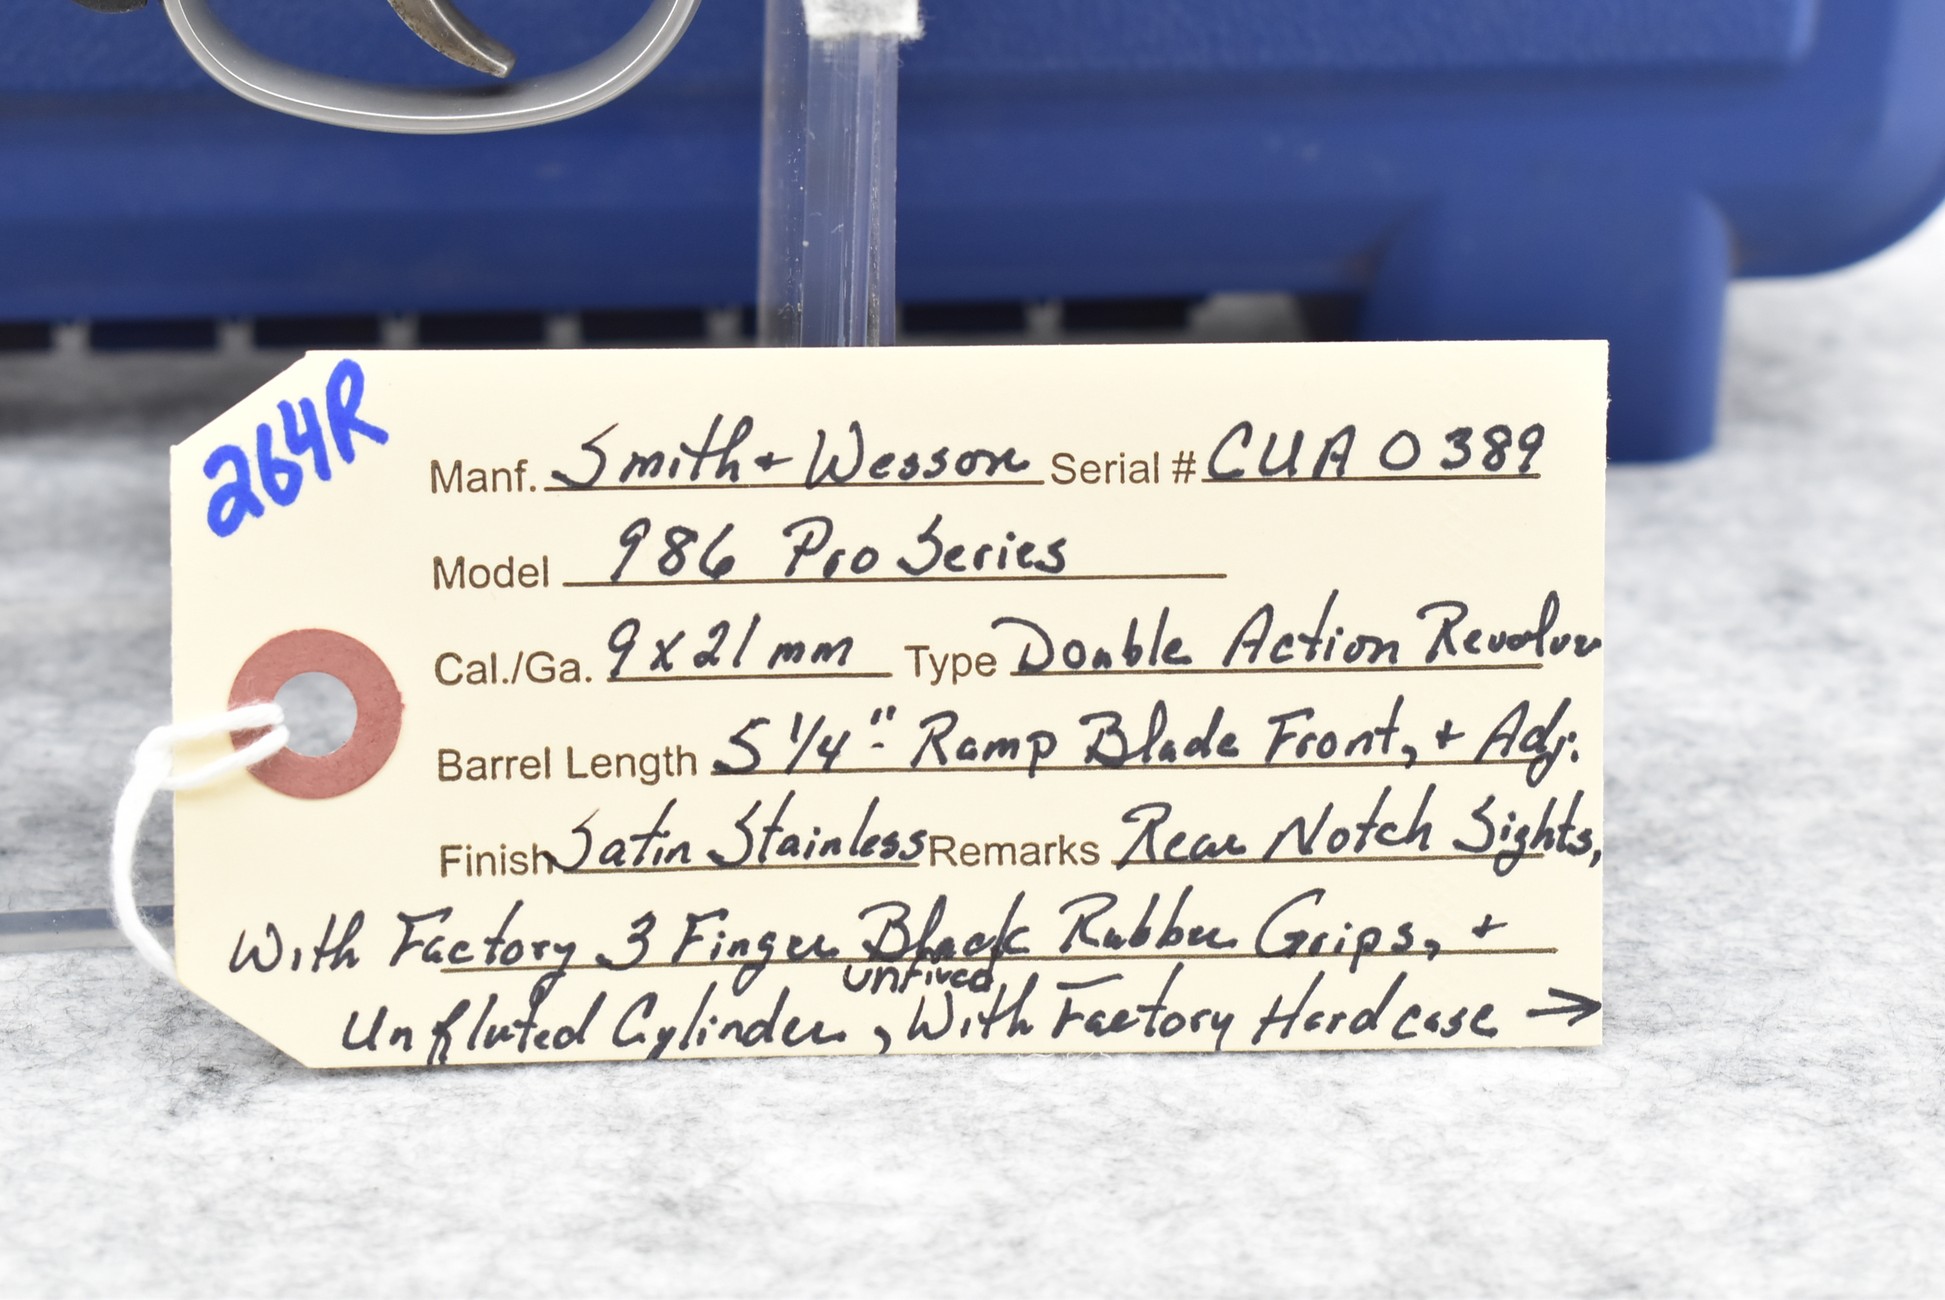 264R
Manf. Smith + Wesson Serial # CUA0389
Model 986 Pro Series
Cal./Ga. 9x21mm Type Double Action Revolver
Barrel Length 5 1/4" - Ramp Blade Front, + Adj.
Finish Satin Stainless Remarks Rear Notch Sights,
With Factory 3 Finger Black Rubber Grips, +
unfired
Unfluted Cylinder, With Factory Hardcase →